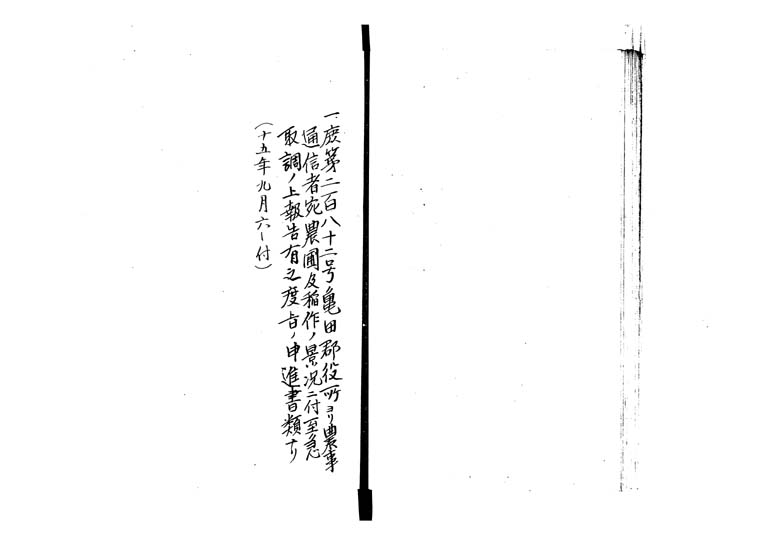 一、庶第二百八十二号亀田郡役所ヨリ農事
通信者宛農圃及稲作ノ景況ニ付至急
取調ノ上報告有之度旨ノ申進書類ナリ
(十五年九月六日付)